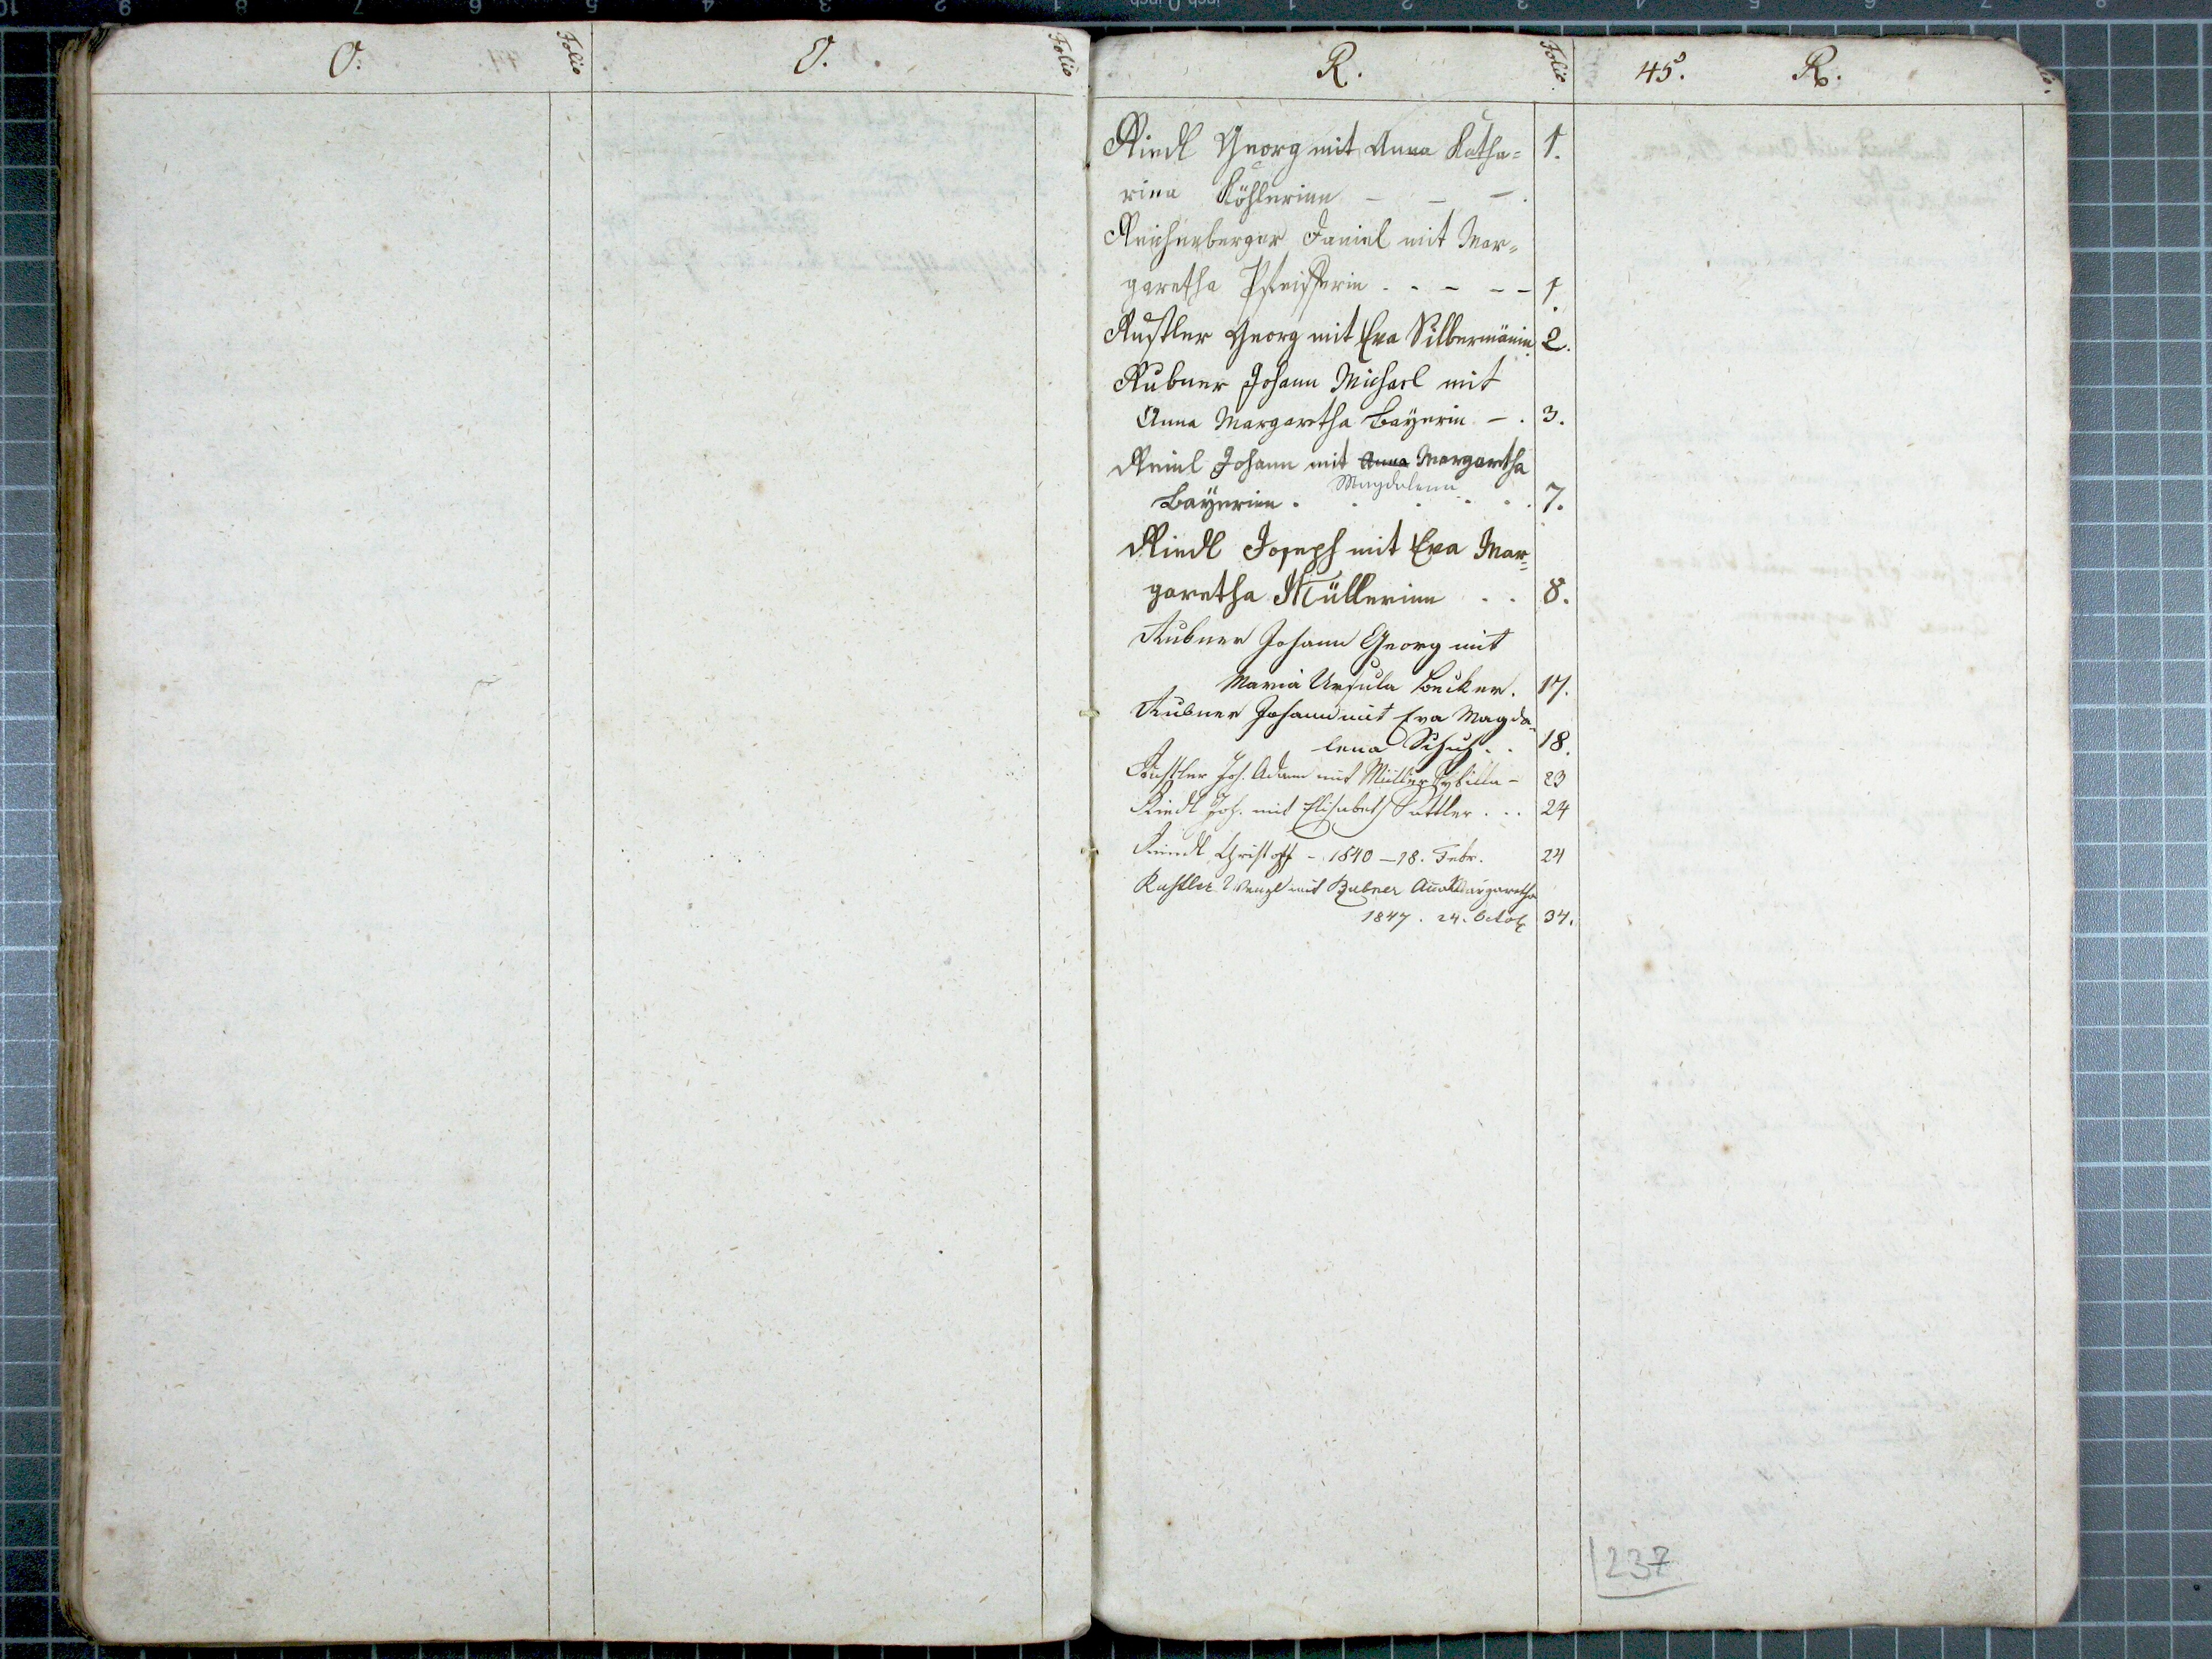 O. Folio O. Folio
R. Folio 45. R.
Riedl Georg mit Anna Katha= 1.
rina Köhlerinn - - -.
Reichenberger Daniel mit Mar=
garetha Pfeifferin . - - - - 1.
Rustler Georg mit Eva Silbermänin 2.
Rubner Johann Michael mit
Anna Margaretha Bayerin - . 3.
Reinl Johann mit Anna Margaretha
Magdalena
Bayerinn . . . . . 7.
Riedl Joseph mit Eva Mar=
garetha Müllerinn . . 8.
Rubner Johann Georg mit
Maria Ursula Becker. 17.
Rubner Johann mit Eva Magda=
lena Schuh . . 18.
Rustler Joh. Adam mit Müller Sybilla - 23
Riedl Joh. mit Elisabeth Sattler . . . 24
Christoph - 1840 - 18. Febr. 24
Rustler Wenzl mit Rubner Aña Margaretha
1847. 24. Octob 34.
237